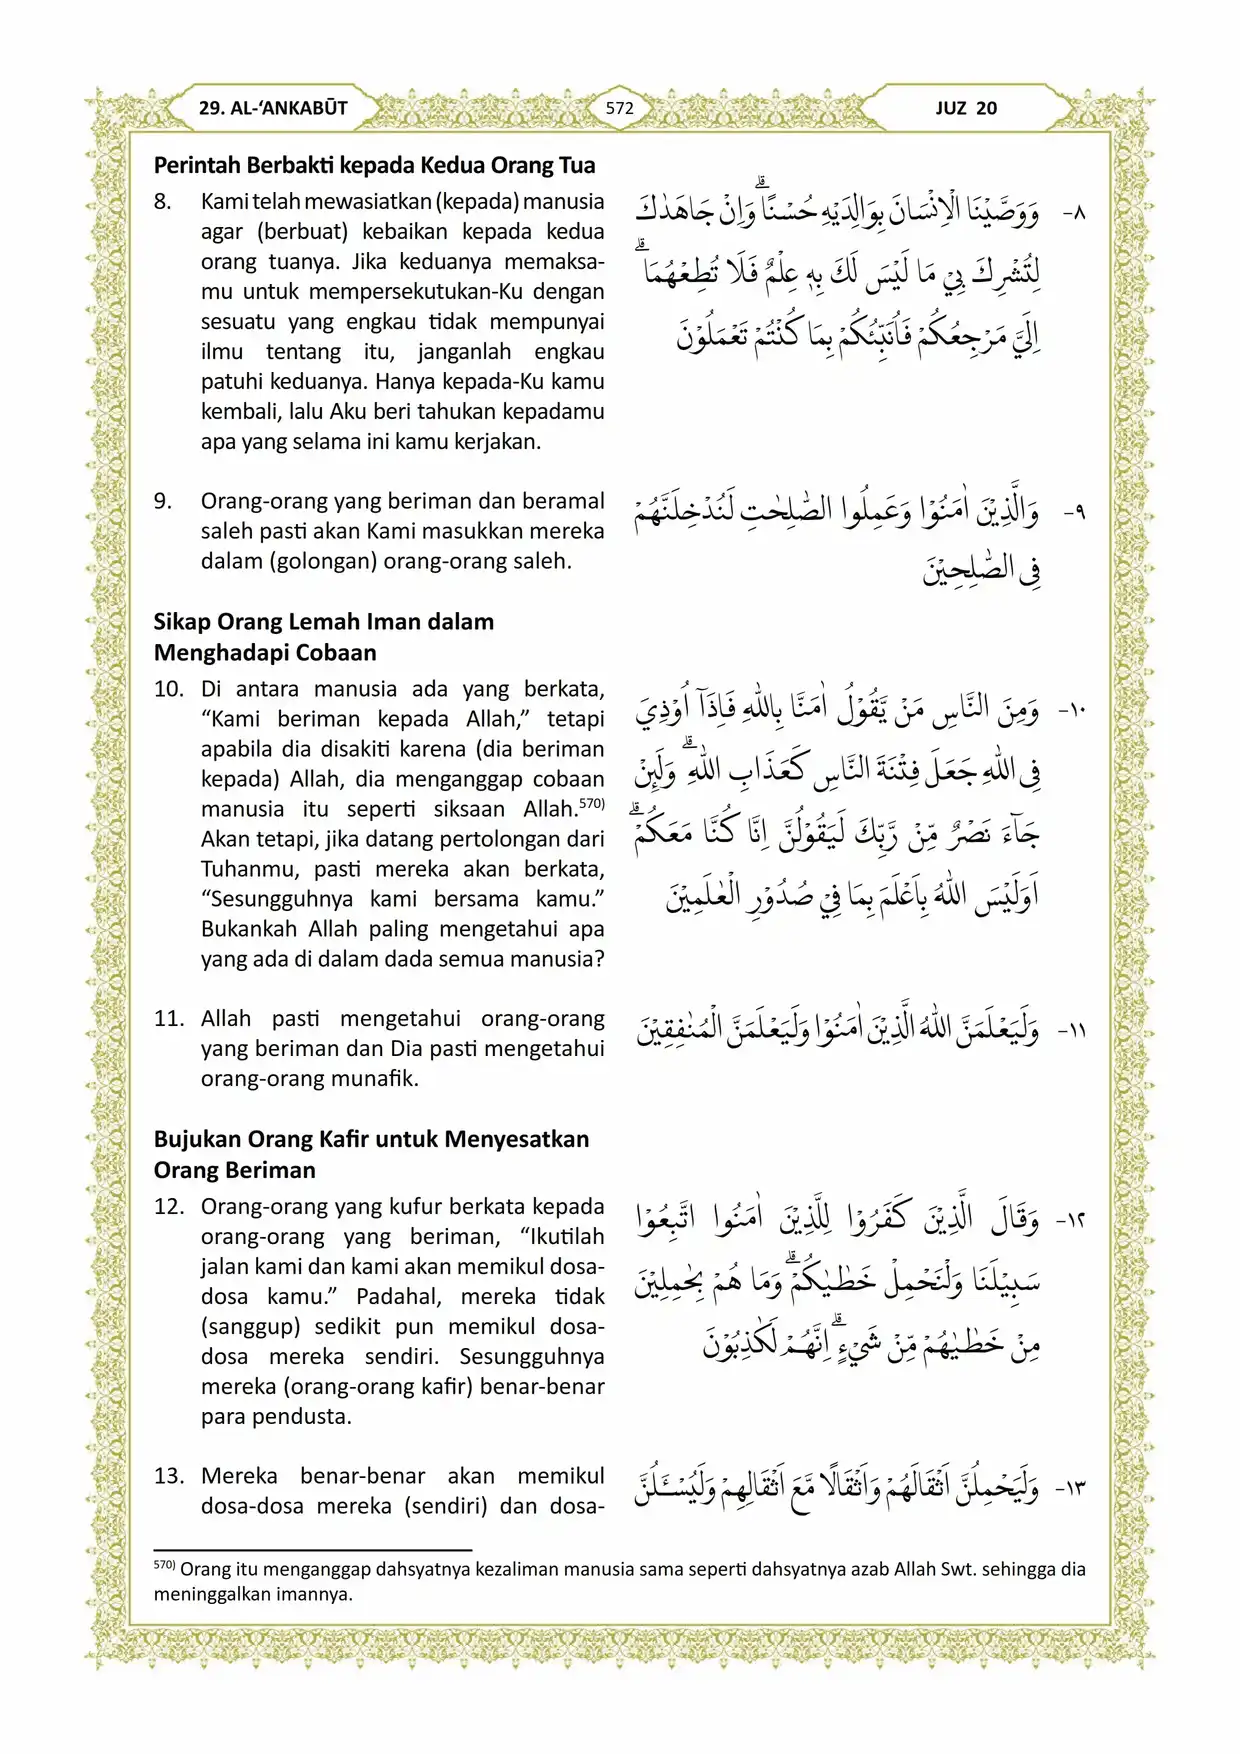 29. AL-‘ANKABŪT
572
JUZ 20
Perintah Berbakti kepada Kedua Orang Tua
8. Kami telah mewasiatkan (kepada) manusia
agar (berbuat) kebaikan kepada kedua
orang tuanya. Jika keduanya memaksa-
mu untuk mempersekutukan-Ku dengan
sesuatu yang engkau tidak mempunyai
ilmu tentang itu, janganlah engkau
patuhi keduanya. Hanya kepada-Ku kamu
kembali, lalu Aku beri tahukan kepadamu
apa yang selama ini kamu kerjakan.
٨- وَوَصَّيْنَا الْاِنْسَانَ بِوَالِدَيْهِ حُسْنًاۗ وَاِنْ جَاهَدٰكَ
لِتُشْرِكَ بِيْ مَا لَيْسَ لَكَ بِهٖ عِلْمٌ فَلَا تُطِعْهُمَاۗ
اِلَيَّ مَرْجِعُكُمْ فَاُنَبِّئُكُمْ بِمَا كُنْتُمْ تَعْمَلُوْنَ
9. Orang-orang yang beriman dan beramal
saleh pasti akan Kami masukkan mereka
dalam (golongan) orang-orang saleh.
٩- وَالَّذِيْنَ اٰمَنُوْا وَعَمِلُوا الصّٰلِحٰتِ لَنُدْخِلَنَّهُمْ
فِى الصّٰلِحِيْنَ
Sikap Orang Lemah Iman dalam
Menghadapi Cobaan
10. Di antara manusia ada yang berkata,
“Kami beriman kepada Allah,” tetapi
apabila dia disakiti karena (dia beriman
kepada) Allah, dia menganggap cobaan
manusia itu seperti siksaan Allah.570)
Akan tetapi, jika datang pertolongan dari
Tuhanmu, pasti mereka akan berkata,
“Sesungguhnya kami bersama kamu.”
Bukankah Allah paling mengetahui apa
yang ada di dalam dada semua manusia?
١٠- وَمِنَ النَّاسِ مَنْ يَّقُوْلُ اٰمَنَّا بِاللّٰهِ فَاِذَآ اُوْذِيَ
فِى اللّٰهِ جَعَلَ فِتْنَةَ النَّاسِ كَعَذَابِ اللّٰهِۗ وَلَىِٕنْ
جَاۤءَ نَصْرٌ مِّنْ رَّبِّكَ لَيَقُوْلُنَّ اِنَّا كُنَّا مَعَكُمْۗ
اَوَلَيْسَ اللّٰهُ بِاَعْلَمَ بِمَا فِيْ صُدُوْرِ الْعٰلَمِيْنَ
11. Allah pasti mengetahui orang-orang
yang beriman dan Dia pasti mengetahui
orang-orang munafik.
١١- وَلَيَعْلَمَنَّ اللّٰهُ الَّذِيْنَ اٰمَنُوْا وَلَيَعْلَمَنَّ الْمُنٰفِقِيْنَ
Bujukan Orang Kafir untuk Menyesatkan
Orang Beriman
12. Orang-orang yang kufur berkata kepada
orang-orang yang beriman, “Ikutilah
jalan kami dan kami akan memikul dosa-
dosa kamu.” Padahal, mereka tidak
(sanggup) sedikit pun memikul dosa-
dosa mereka sendiri. Sesungguhnya
mereka (orang-orang kafir) benar-benar
para pendusta.
١٢- وَقَالَ الَّذِيْنَ كَفَرُوْا لِلَّذِيْنَ اٰمَنُوا اتَّبِعُوْا
سَبِيْلَنَا وَلْنَحْمِلْ خَطٰيٰكُمْۗ وَمَا هُمْ بِحٰمِلِيْنَ
مِنْ خَطٰيٰهُمْ مِّنْ شَيْءٍۗ اِنَّهُمْ لَكٰذِبُوْنَ
13. Mereka benar-benar akan memikul
dosa-dosa mereka (sendiri) dan dosa-
١٣- وَلَيَحْمِلُنَّ اَثْقَالَهُمْ وَاَثْقَالًا مَّعَ اَثْقَالِهِمْ وَلَيُسْـَٔلُنَّ
570) Orang itu menganggap dahsyatnya kezaliman manusia sama seperti dahsyatnya azab Allah Swt. sehingga dia
meninggalkan imannya.